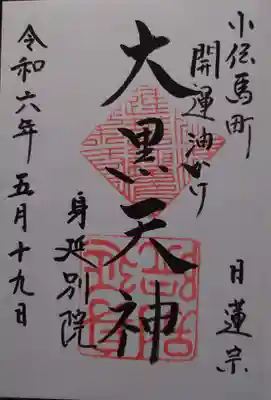 小伝馬町
開運油かけ
日蓮宗
大黒天神
身延別院
令和六年五月十九日